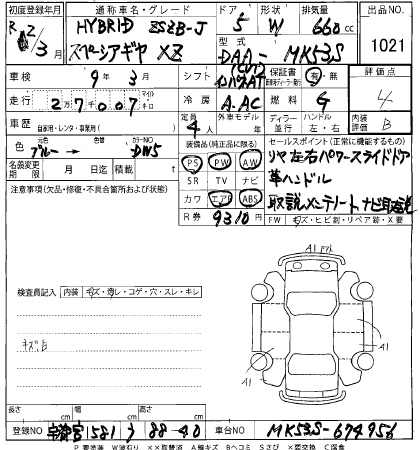 初度登録年月 通称車名・グレード ドア 形状 排気量 出品NO
R 2/3 HYBRID ZSZB-J 5 W 660 cc 1021
スペーシアギヤ XZ 型式 DAA-MK53S
車検 9年 3月 シフト インパネAT 保証書 有・無 評価点
走行 27007 マイル キロ 冷房 A.AC 燃料 G 4
車歴 自家用・レンタ・事業用( ) 定員 4人 外車モデル年 ディーラー 並行 ハンドル 左・右 内装評価 B
色 元色 ブルー→ 色替 カラーNO 装備品(純正品に限る) セールスポイント(正常に機能するもの)
名義変更期限 月 日 迄 積載 t PS PW AW リヤ左右パワースライドドア
注意事項(欠品・修復・不具合箇所および状態) SR TV ナビ 革ハンドル
カワ エアB ABS 取説 メンテノート ナビ取説
R券 9310円 FW キズ・ヒビ割・リペア跡・X要
検査員記入 内装 キズ・汚レ・コゲ・穴・スレ・キレ
A1
A1
A1
長さ cm 幅 cm 高さ cm
登録NO 宇都宮 581 88-40 車台NO MK53S-674956
P要塗装 W波有り XX取替済 A線キズ Bヘコミ Sさび X要交換 C腐食